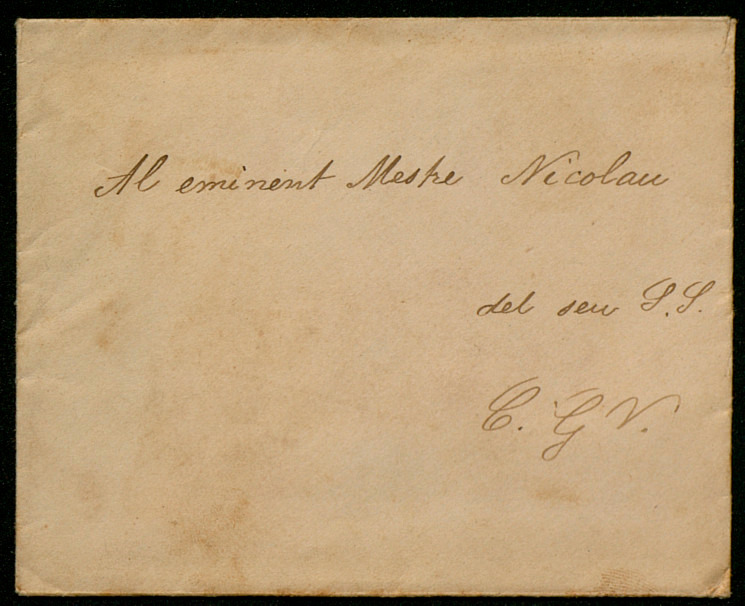 Al eminent Mestre Nicolau
del seu S.S.
C. G V.